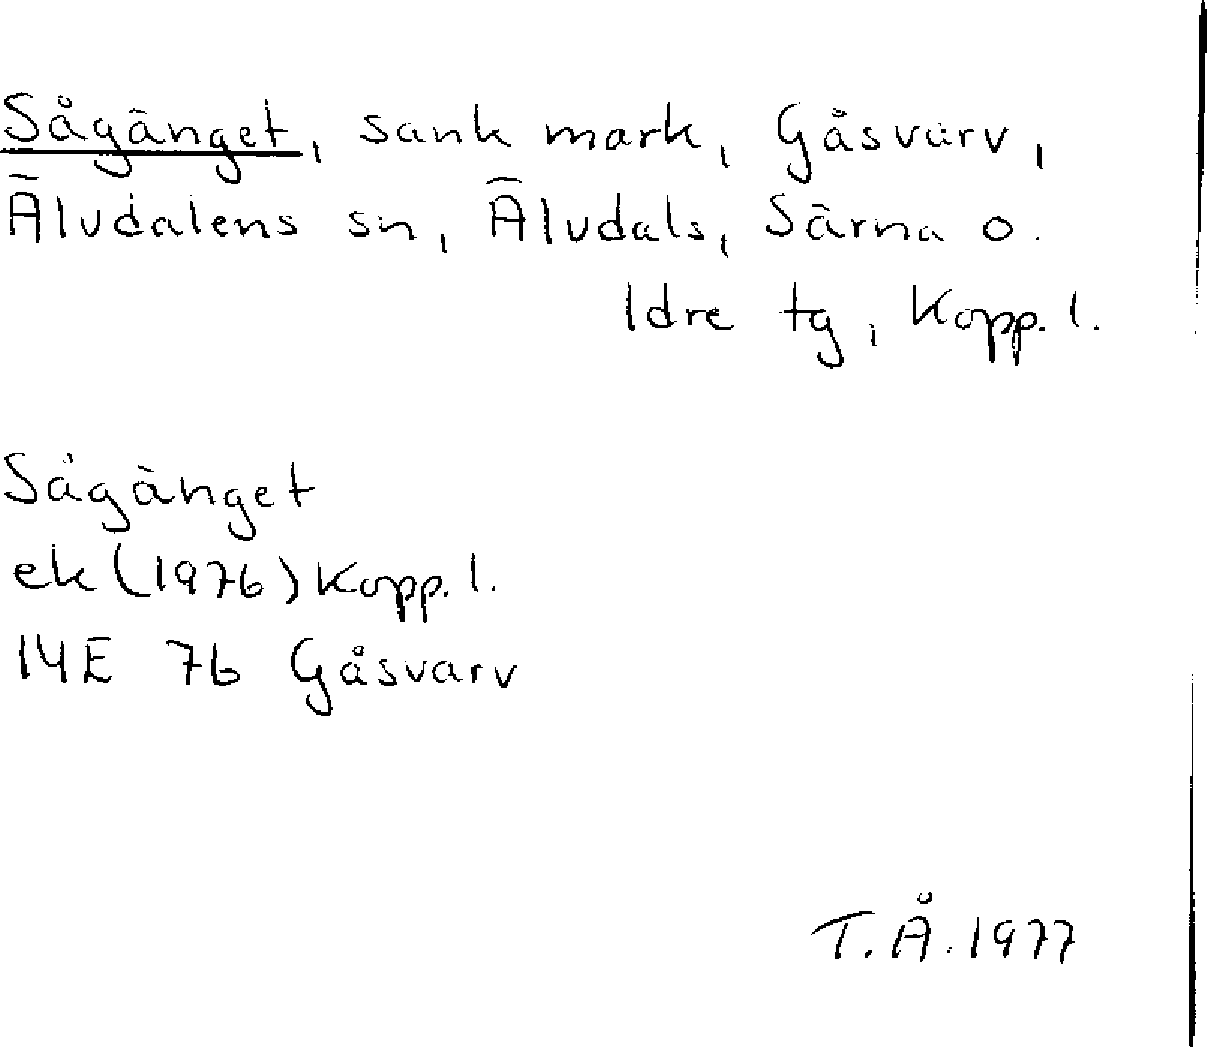 Sågänget, sank mark, Gåsvarv,
Älvdalens sn, Älvdals, Särna o.
Idre tg, Kopp. l.
Sågänget
ek (1976) Kopp. l.
14E 7b Gåsvarv
T. Å. 1977